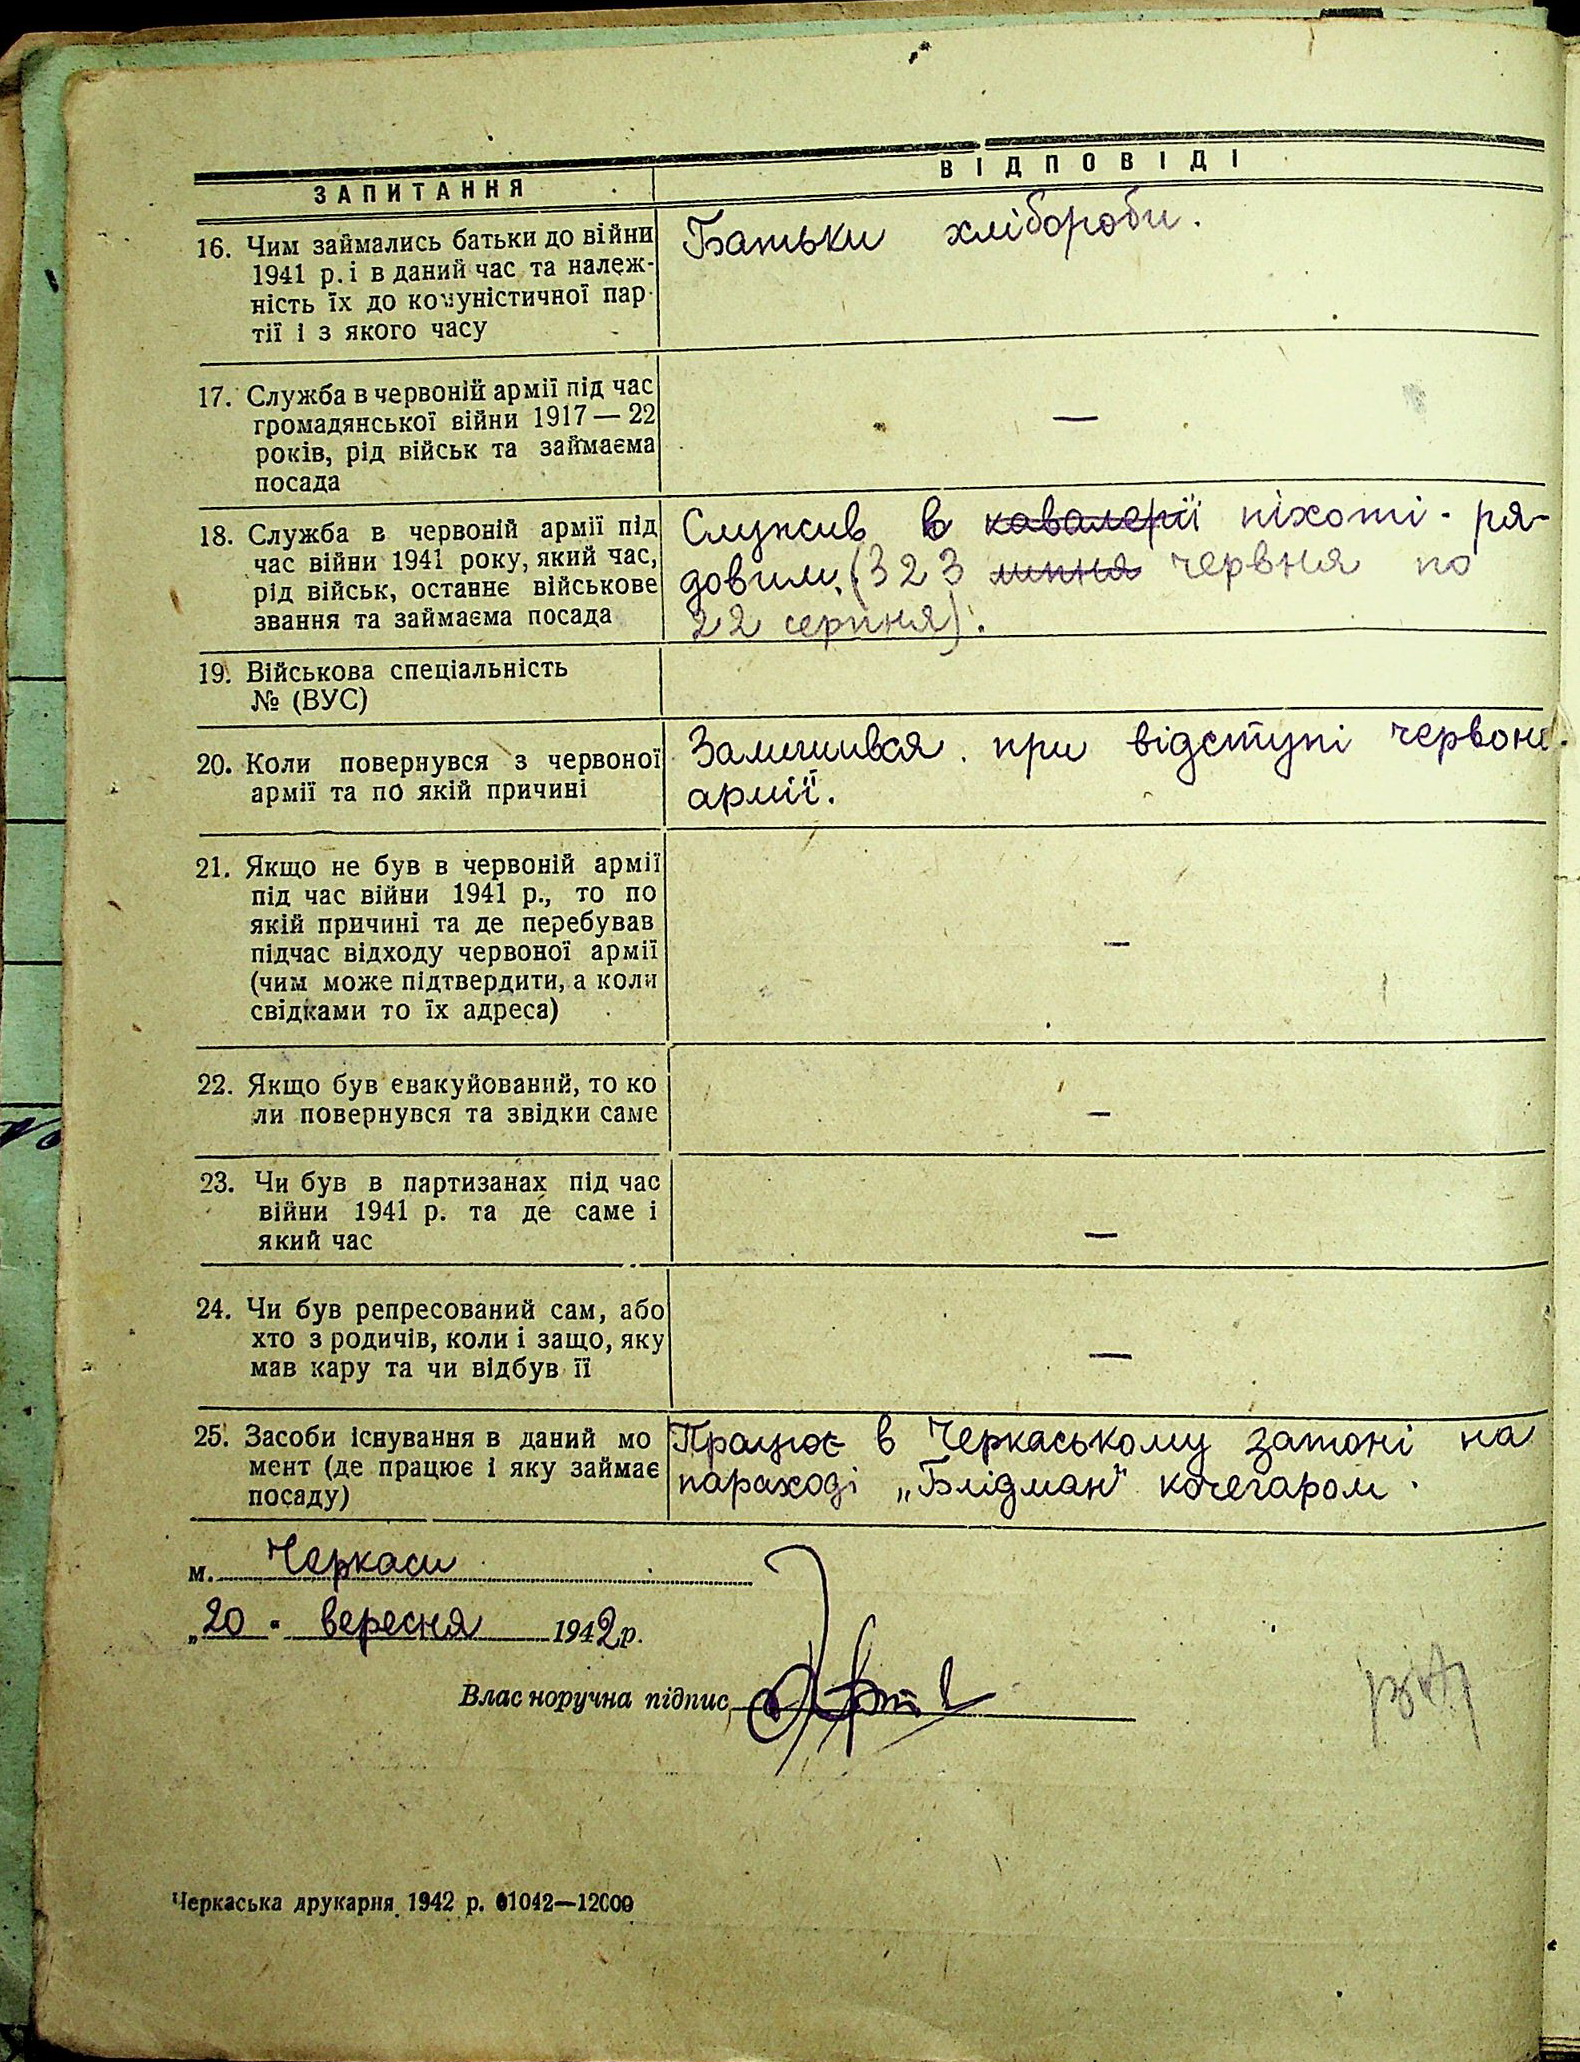 ЗАПИТАННЯ
ВІДПОВІДІ
16. Чим займались батьки до війни
1941 р. і в даний час та належ-
ність їх до комуністичної пар-
тії і з якого часу
Батьки хлібороби.
17. Служба в червоній армії під час
громадянської війни 1917—22
років, рід військ та займаєма
посада
—
18. Служба в червоній армії під
час війни 1941 року, який час,
рід військ, останнє військове
звання та займаєма посада
Служив в кавалерії піхоті - ря-
довим. (З 23 липня червня по
22 серпня).
19. Військова спеціальність
№ (ВУС)
20. Коли повернувся з червоної
армії та по якій причині
Залишився при відступі червон.
армії.
21. Якщо не був в червоній армії
під час війни 1941 р., то по
якій причині та де перебував
підчас відходу червоної армії
(чим може підтвердити, а коли
свідками то їх адреса)
—
22. Якщо був евакуйований, то ко
ли повернувся та звідки саме
—
23. Чи був в партизанах під час
війни 1941 р. та де саме і
який час
—
24. Чи був репресований сам, або
хто з родичів, коли і защо, яку
мав кару та чи відбув її
—
25. Засоби існування в даний мо
мент (де працює і яку займає
посаду)
Працює в Черкаському затоні на
параході „Блідман" кочегаром.
м. Черкаси
„20" вересня 1942 р.
Власноручна підпис
Черкаська друкарня 1942 р. 01042—12000